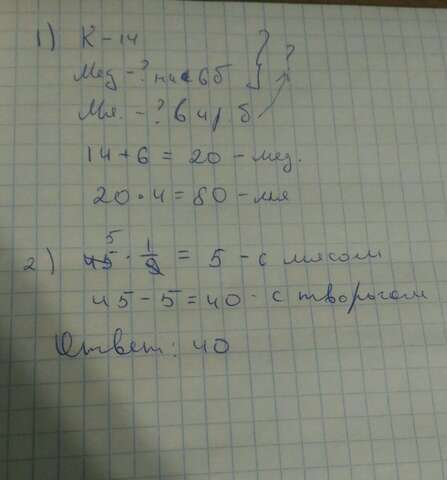 1) К - 14
Мед - ? на 6 б } ?
Мя. - ? в 4 р б
14 + 6 = 20 - мед.
20 · 4 = 80 - мя
2) 45 · 1/9 = 5 - с мясом
5
45 - 5 = 40 - с творогом
Ответ: 40